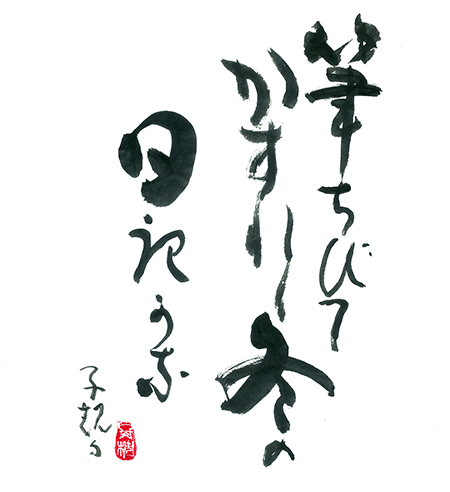 筆ちびて
かすれし冬の
日記かな
子規句